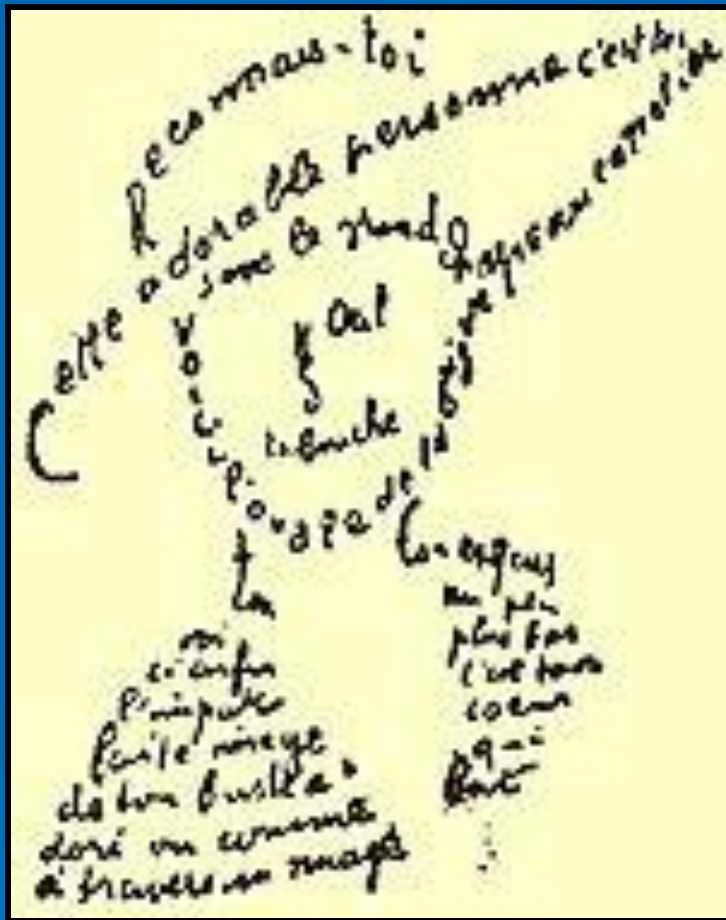 Reconnais-toi
Cette adorable personne c'est toi
sous le grand chapeau canotier
Oeil
Nez
La bouche
Voici l'ovale de ta figure
ton
cou exquis
voi
ci enfin
l'impar
faite image
de ton buste a
doré vu comme
à travers un nuage
un peu
plus bas
c'est ton
coeur
qui
bat